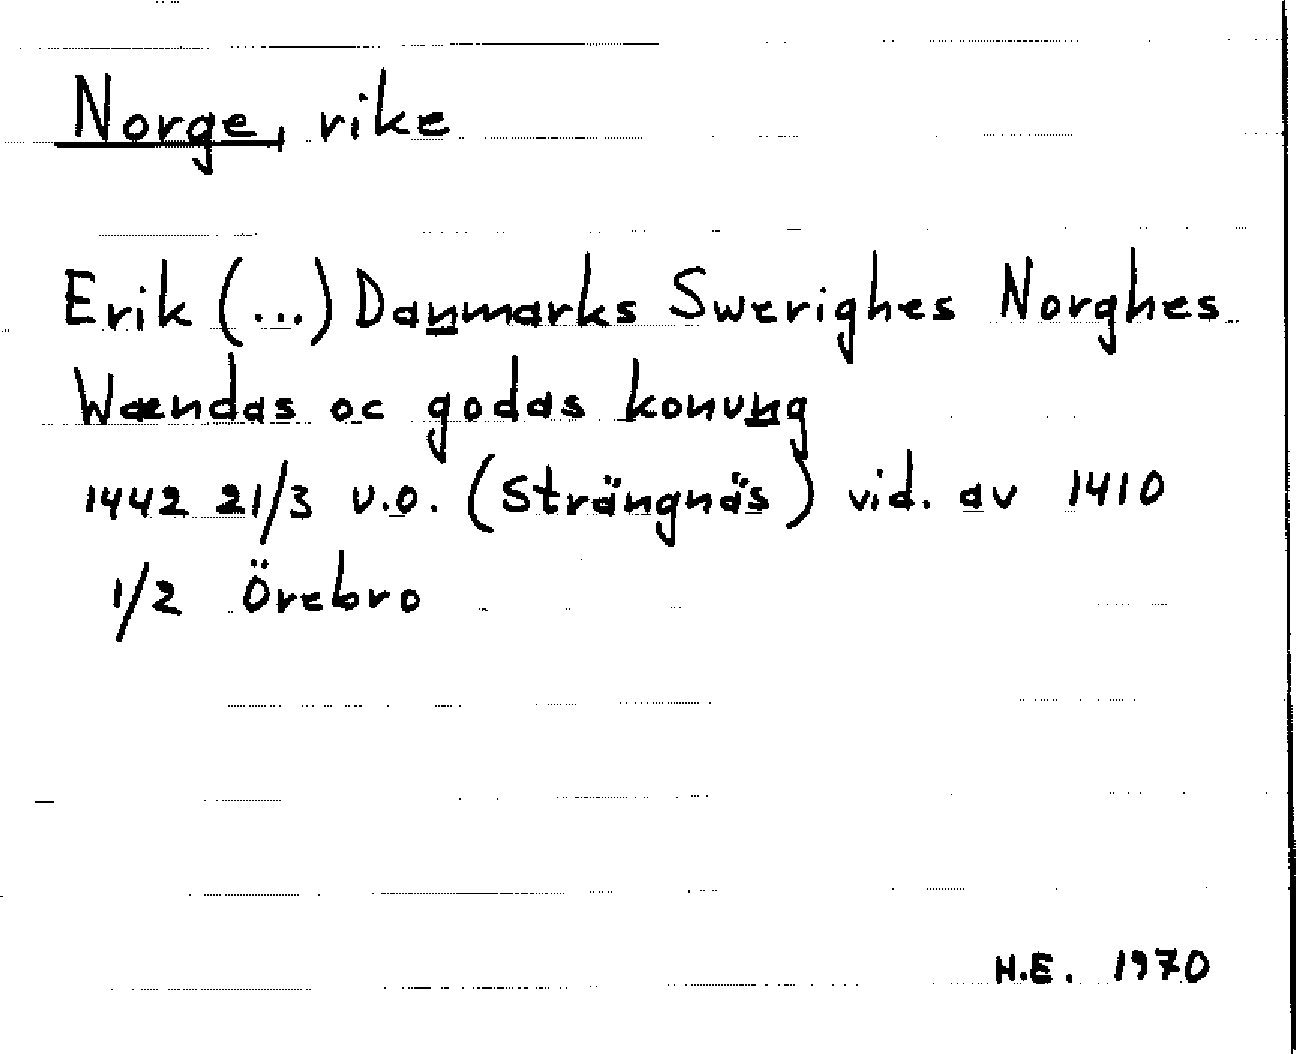 Norge, rike
Erik (...) Danmarks Swerighes Norghes
Wændas oc godas konung
1442 21/3 u.o. (Strängnäs) vid. av 1410
1/2 Örebro
H.E. 1970